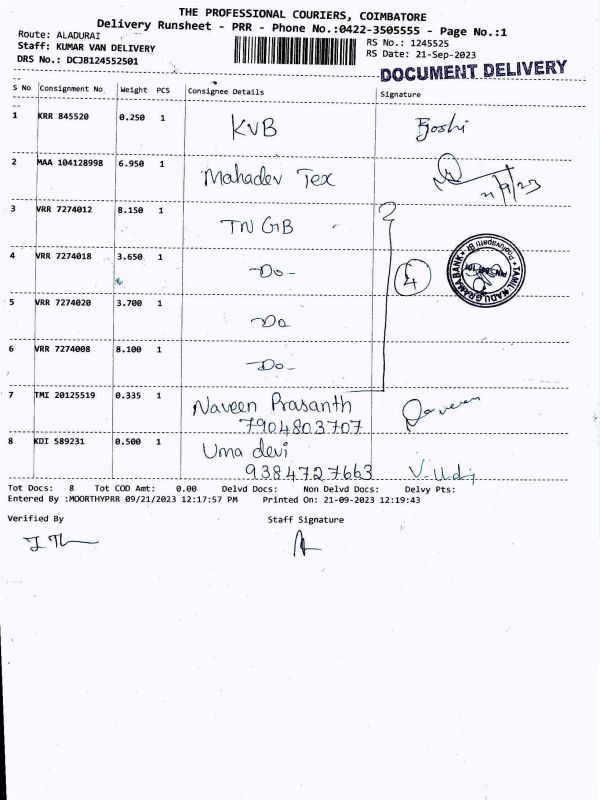 THE PROFESSIONAL COURIERS, COIMBATORE
Delivery Runsheet - PRR - Phone No.:0422-3505555 - Page No.:1
Route: ALADURAI
Staff: KUMAR VAN DELIVERY
DRS No.: DCJB124552501
RS No.: 1245525
RS Date: 21-Sep-2023
DOCUMENT DELIVERY
S No Consignment No Weight PCS Consignee Details Signature
1 KRR 845520 0.250 1 KVB Bjoshi
2 MAA 104128998 6.950 1 Mahadev Tex 21/9/23
3 VRR 7274012 8.150 1 TNGB
4 VRR 7274018 3.650 1 -Do- 4
TAMIL NADU GRAMA BANK
5 VRR 7274020 3.700 1 Do
6 VRR 7274008 8.100 1 -Do-
7 TMI 20125519 0.335 1 Naveen Prasanth
7904803707
8 KDI 589231 0.500 1 Uma devi
9384727663
Tot Docs: 8 Tot COD Amt: 0.00 Delvd Docs: Non Delvd Docs: Delvy Pts:
Entered By :MOORTHYPRR 09/21/2023 12:17:57 PM Printed On: 21-09-2023 12:19:43
Verified By Staff Signature